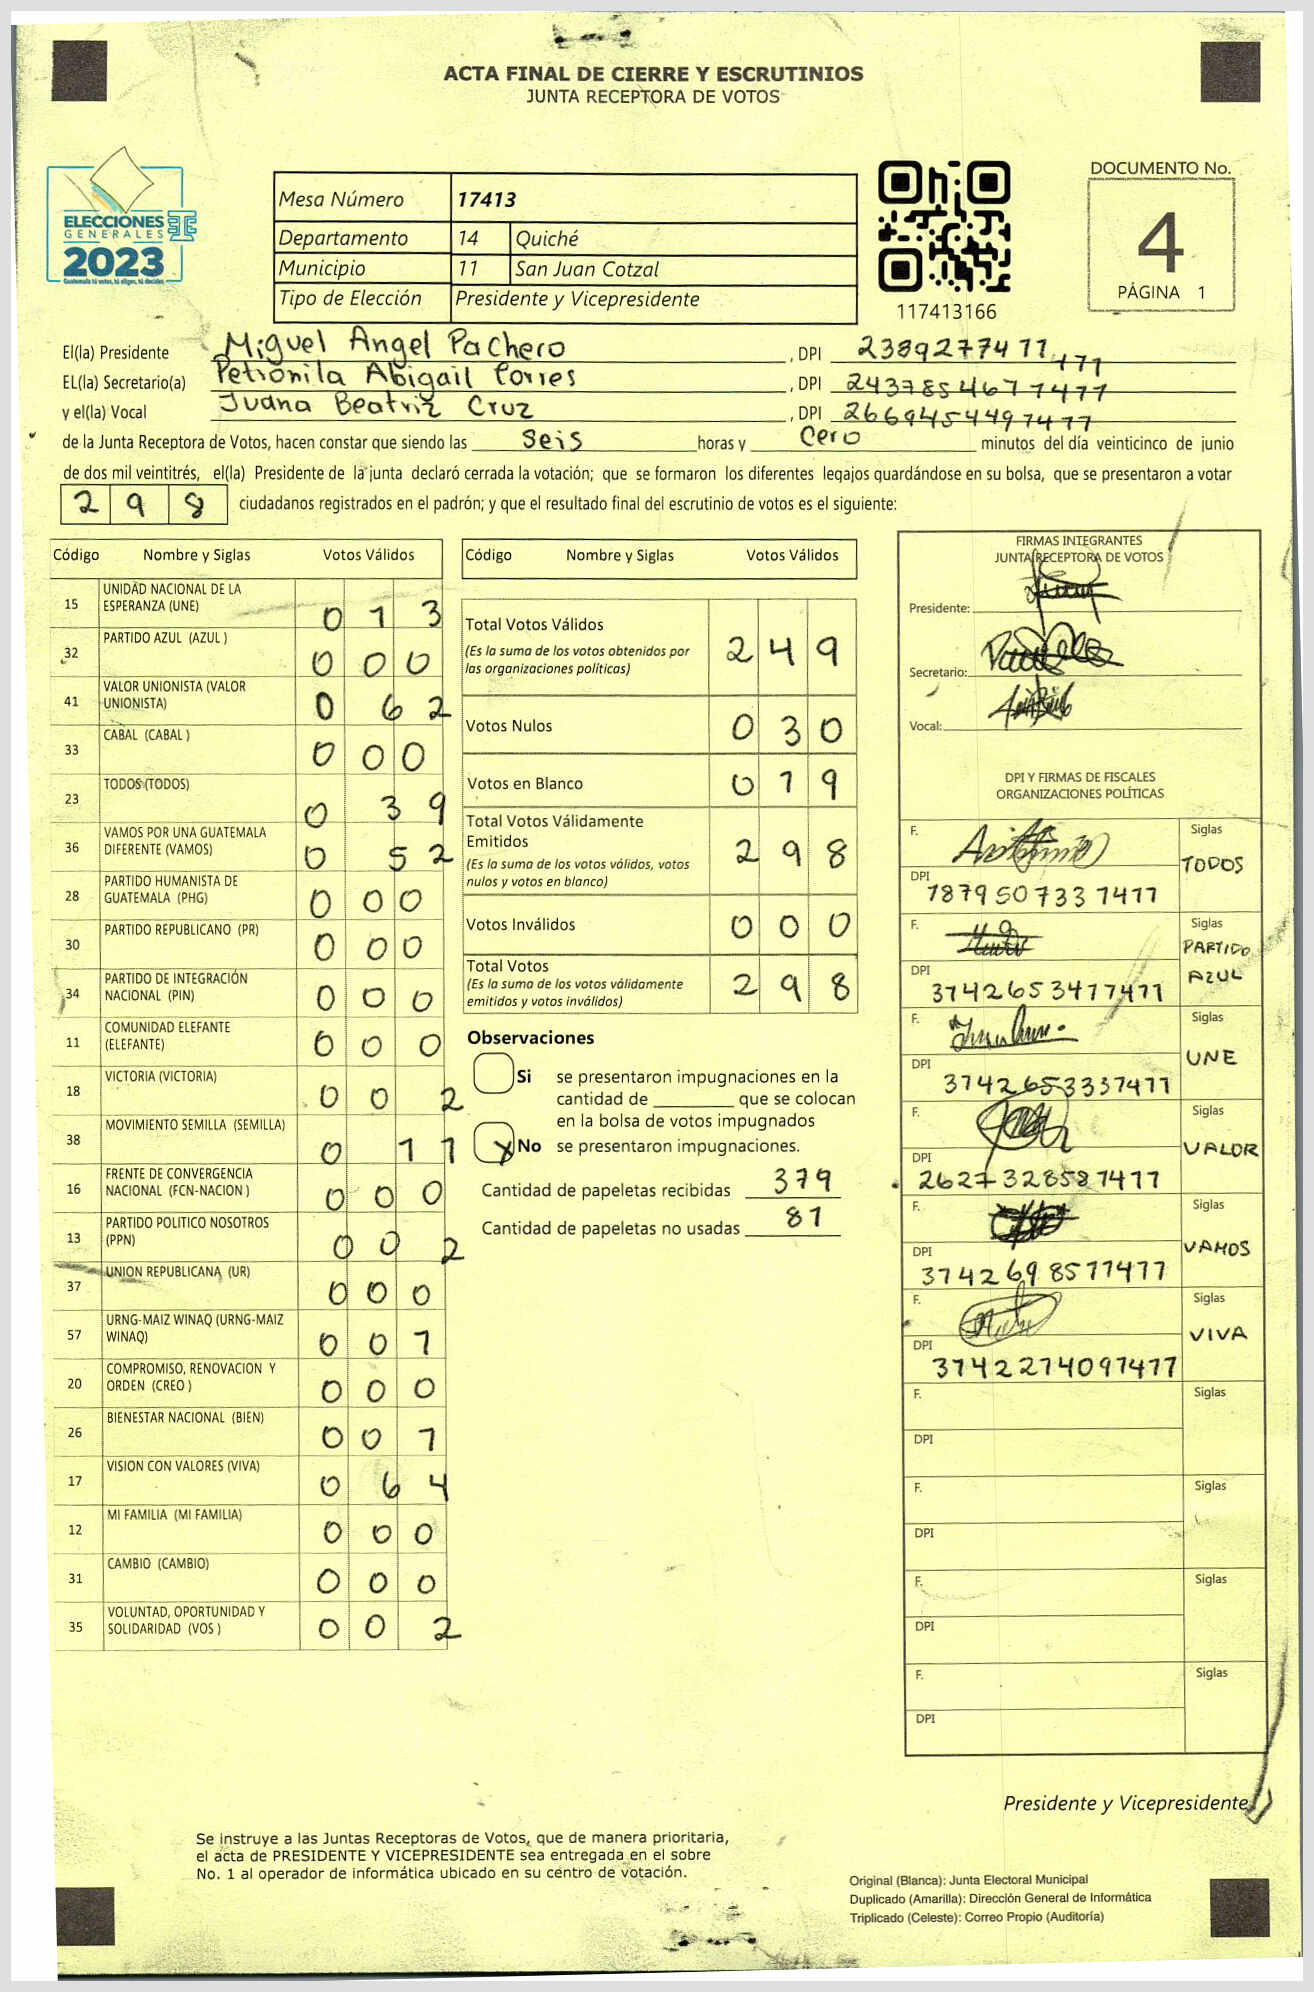 ACTA FINAL DE CIERRE Y ESCRUTINIOS
JUNTA RECEPTORA DE VOTOS
ELECCIONES
GENERALES
2023
Guatemala tú votas, tú eliges, tú decides
Mesa Número 17413
Departamento 14 Quiché
Municipio 11 San Juan Cotzal
Tipo de Elección Presidente y Vicepresidente
117413166
DOCUMENTO No.
4
PÁGINA 1
El(la) Presidente Miguel Angel Pachero , DPI 2389277411 477
EL(la) Secretario(a) Petronila Abigail Corres , DPI 2437854677477
y el(la) Vocal Juana Beatriz Cruz , DPI 2669454497477
de la Junta Receptora de Votos, hacen constar que siendo las seis horas y cero minutos del día veinticinco de junio
de dos mil veintitrés, el(la) Presidente de la junta declaró cerrada la votación; que se formaron los diferentes legajos quardándose en su bolsa, que se presentaron a votar
298 ciudadanos registrados en el padrón; y que el resultado final del escrutinio de votos es el siguiente:
Código Nombre y Siglas Votos Válidos
15 UNIDAD NACIONAL DE LA ESPERANZA (UNE) 013
32 PARTIDO AZUL (AZUL ) 000
41 VALOR UNIONISTA (VALOR UNIONISTA) 062
33 CABAL (CABAL ) 000
23 TODOS (TODOS) 039
36 VAMOS POR UNA GUATEMALA DIFERENTE (VAMOS) 052
28 PARTIDO HUMANISTA DE GUATEMALA (PHG) 000
30 PARTIDO REPUBLICANO (PR) 000
34 PARTIDO DE INTEGRACIÓN NACIONAL (PIN) 000
11 COMUNIDAD ELEFANTE (ELEFANTE) 000
18 VICTORIA (VICTORIA) 002
38 MOVIMIENTO SEMILLA (SEMILLA) 011
16 FRENTE DE CONVERGENCIA NACIONAL (FCN-NACION ) 000
13 PARTIDO POLITICO NOSOTROS (PPN) 002
37 UNION REPUBLICANA (UR) 000
57 URNG-MAIZ WINAQ (URNG-MAIZ WINAQ) 001
20 COMPROMISO, RENOVACION Y ORDEN (CREO ) 000
26 BIENESTAR NACIONAL (BIEN) 001
17 VISION CON VALORES (VIVA) 064
12 MI FAMILIA (MI FAMILIA) 000
31 CAMBIO (CAMBIO) 000
35 VOLUNTAD, OPORTUNIDAD Y SOLIDARIDAD (VOS ) 002
Código Nombre y Siglas Votos Válidos
Total Votos Válidos 249
(Es la suma de los votos obtenidos por
las organizaciones políticas)
Votos Nulos 030
Votos en Blanco 019
Total Votos Válidamente
Emitidos 298
(Es la suma de los votos válidos, votos
nulos y votos en blanco)
Votos Inválidos 000
Total Votos 298
(Es la suma de los votos válidamente
emitidos y votos inválidos)
Observaciones
Si se presentaron impugnaciones en la
cantidad de ________ que se colocan
en la bolsa de votos impugnados
X No se presentaron impugnaciones.
Cantidad de papeletas recibidas 379
Cantidad de papeletas no usadas 81
FIRMAS INTEGRANTES
JUNTA RECEPTORA DE VOTOS
Presidente:
Secretario:
Vocal:
DPI Y FIRMAS DE FISCALES
ORGANIZACIONES POLÍTICAS
F. Siglas
TODOS
DPI 1879507337477
F. Siglas
PARTIDO
AZUL
DPI 3742653477477
F. Siglas
UNE
DPI 3742653337477
F. Siglas
VALOR
DPI 2627328587477
F. Siglas
VAMOS
DPI 3742698577477
F. Siglas
VIVA
DPI 3742274097477
F. Siglas
DPI
F. Siglas
DPI
F. Siglas
DPI
F. Siglas
DPI
Presidente y Vicepresidente
Se instruye a las Juntas Receptoras de Votos, que de manera prioritaria,
el acta de PRESIDENTE Y VICEPRESIDENTE sea entregada en el sobre
No. 1 al operador de informática ubicado en su centro de votación.
Original (Blanca): Junta Electoral Municipal
Duplicado (Amarilla): Dirección General de Informática
Triplicado (Celeste): Correo Propio (Auditoría)